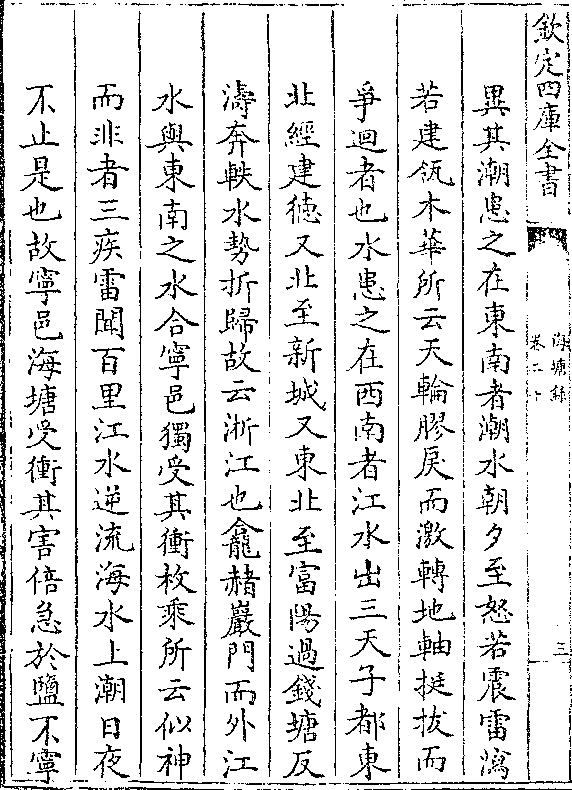 欽定四庫全書
海塘錄
卷二十
三
異其潮患之在東南者潮水朝夕至怒若震雷瀉
若建瓴木華所云天輪膠戾而激轉地軸挺拔而
爭迴者也水患之在西南者江水出三天子都東
北經建徳又北至新城又東北至富陽過錢塘反
濤奔軼水勢折歸故云浙江也龕赭巖門而外江
水與東南之水合寧邑獨受其衝枚乘所云似神
而非者三疾雷聞百里江水逆流海水上潮日夜
不止是也故寧邑海塘受衝其害倍急於鹽不寧